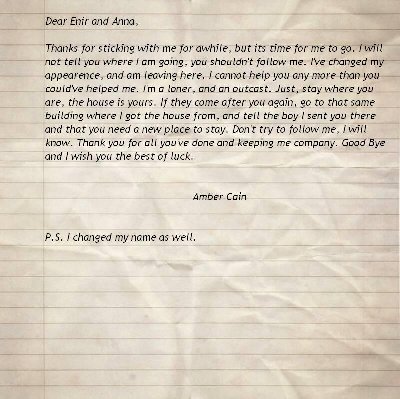 Dear Enir and Anna,
Thanks for sticking with me for awhile, but its time for me to go. I will
not tell you where I am going, you shouldn't follow me. I've changed my
appearence, and am leaving here. I cannot help you any more than you
could've helped me. I'm a loner, and an outcast. Just, stay where you
are, the house is yours. If they come after you again, go to that same
building where I got the house from, and tell the boy I sent you there
and that you need a new place to stay. Don't try to follow me, I will
know. Thank you for all you've done and keeping me company. Good Bye
and I wish you the best of luck.
Amber Cain
P.S. I changed my name as well.